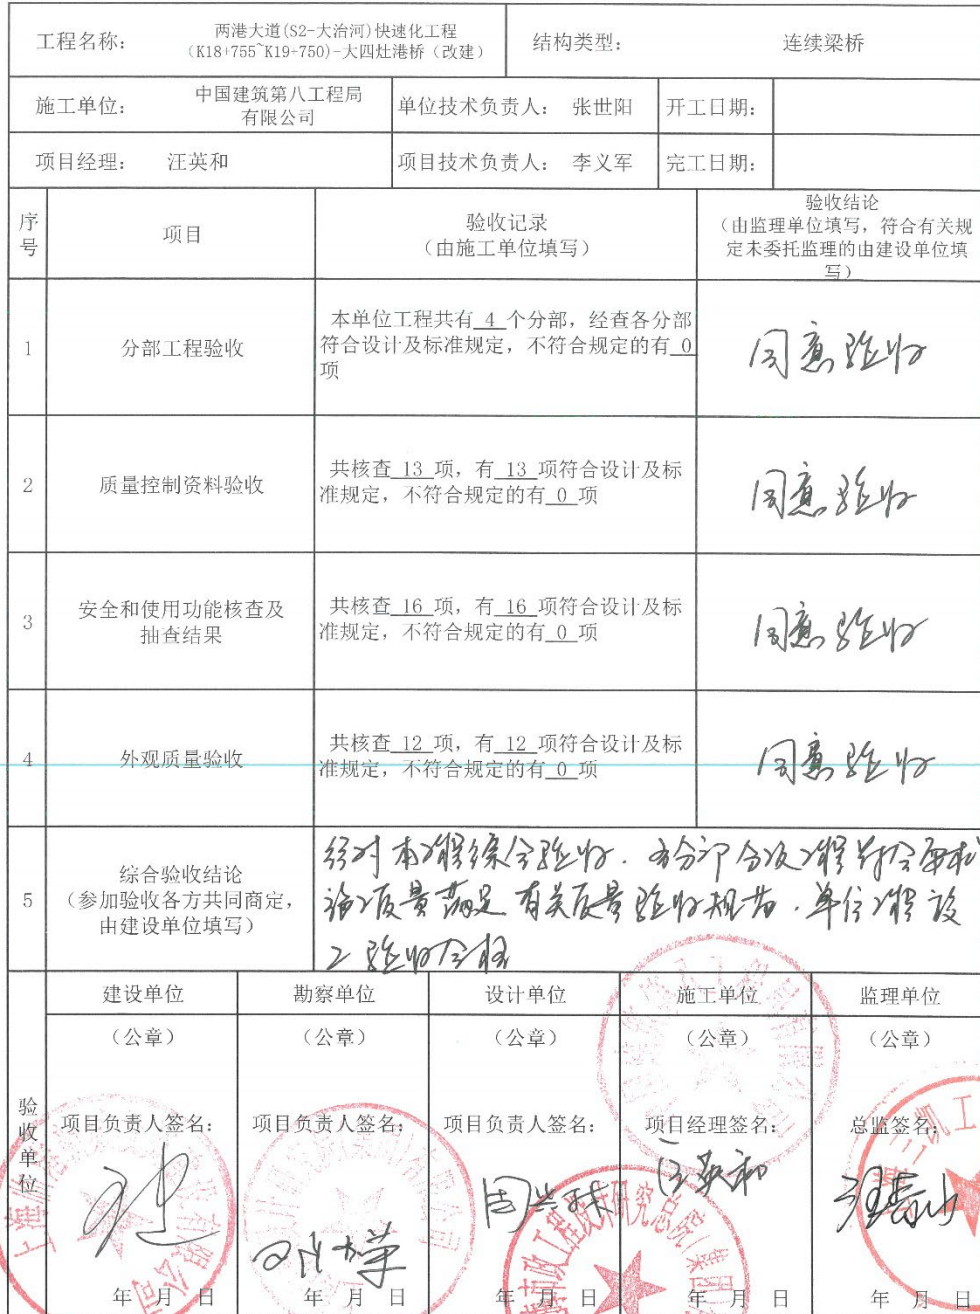 工程名称:
两港大道(S2-大治河)快速化工程
(K18+755~K19+750)-大四灶港桥（改建）
结构类型:
连续梁桥
施工单位:
中国建筑第八工程局
有限公司
单位技术负责人: 张世阳
开工日期:
项目经理: 汪英和
项目技术负责人: 李义军
完工日期:
序号
项目
验收记录
（由施工单位填写）
验收结论
（由监理单位填写，符合有关规
定未委托监理的由建设单位填
写）
1
分部工程验收
本单位工程共有 4 个分部，经查各分部
符合设计及标准规定，不符合规定的有 0
项
同意验收
2
质量控制资料验收
共核查 13 项，有 13 项符合设计及标
准规定，不符合规定的有 0 项
同意验收
3
安全和使用功能核查及
抽查结果
共核查 16 项，有 16 项符合设计及标
准规定，不符合规定的有 0 项
同意验收
4
外观质量验收
共核查 12 项，有 12 项符合设计及标
准规定，不符合规定的有 0 项
同意验收
5
综合验收结论
（参加验收各方共同商定，
由建设单位填写）
经对本工程综合验收，各分部分项工程符合要求
质量满足有关质量验收规范，单位工程竣
工验收合格
验收单位
建设单位
勘察单位
设计单位
施工单位
监理单位
（公章）
（公章）
（公章）
（公章）
（公章）
项目负责人签名:
项目负责人签名:
项目负责人签名:
项目经理签名:
总监签名:
汪英和
年 月 日
年 月 日
年 月 日
年 月 日
年 月 日